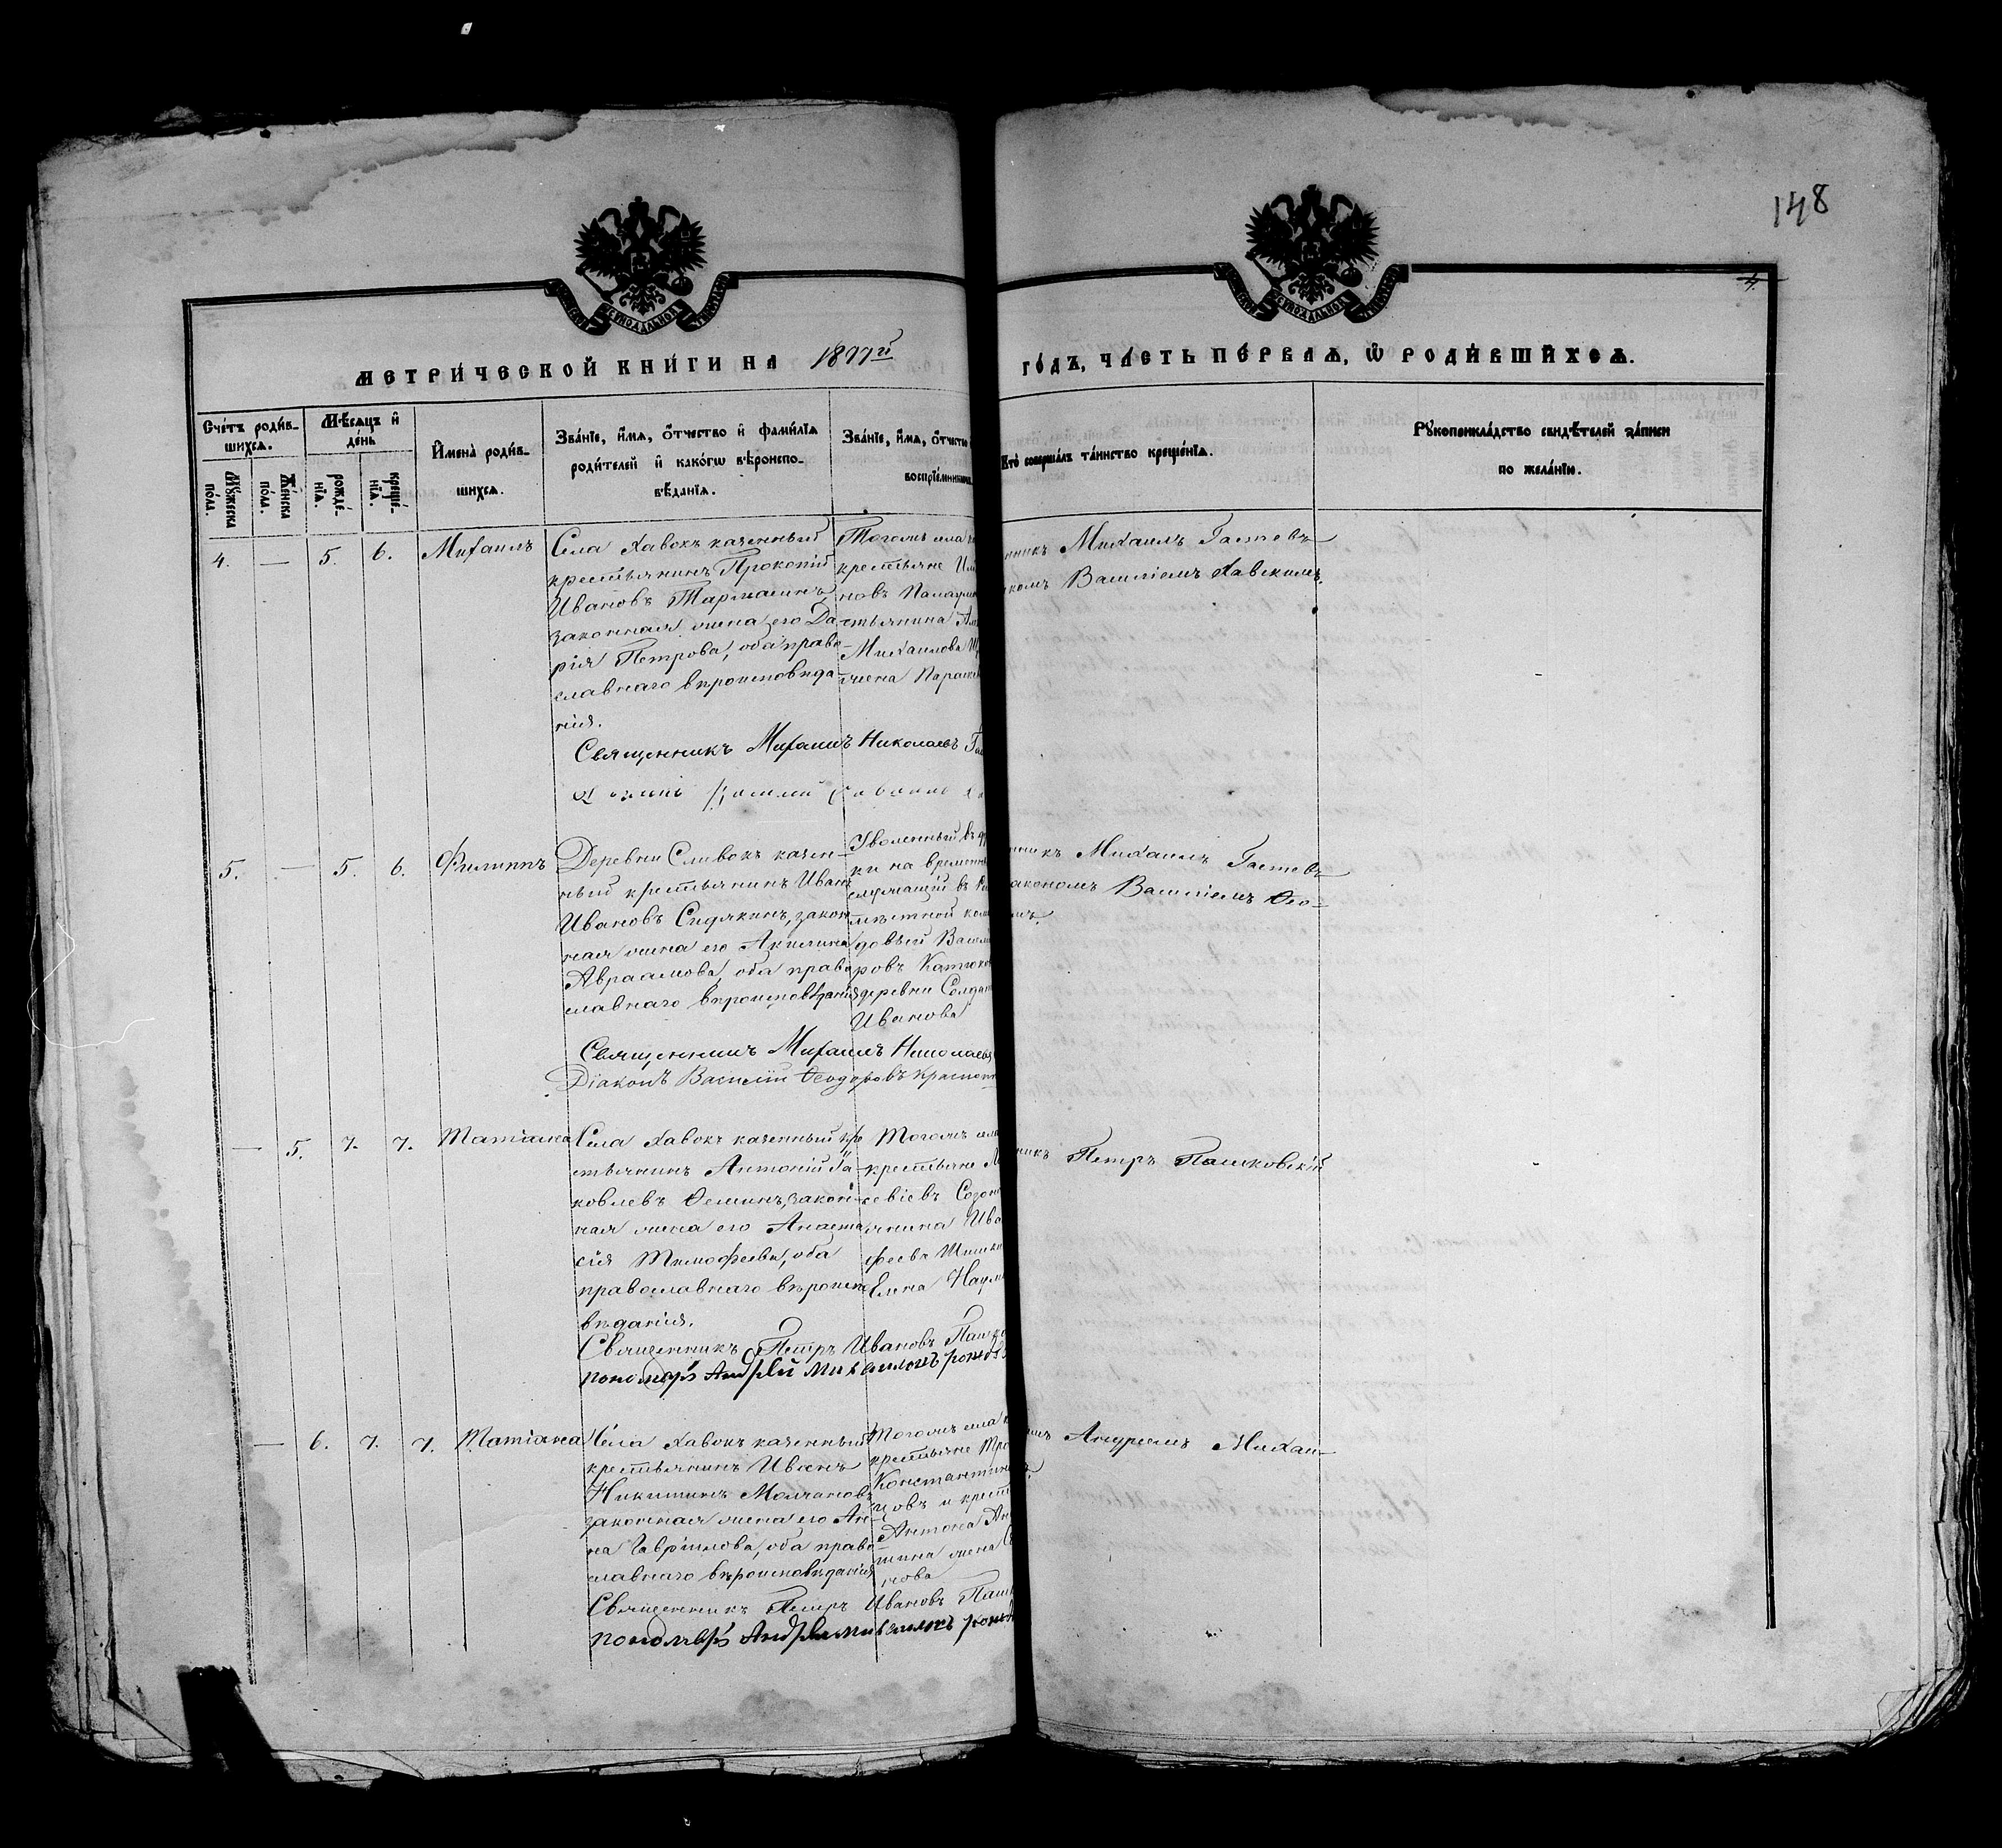 148
4.
МЕТРИ́ЧЕСКОЙ КНИ́ГИ НА 1877й
ГО́ДЪ, ЧА́СТЬ ПЕ́РВАѦ, Ѽ РОДИ́ВШИХСѦ.
Сче́тъ роди́в-
шихсѧ.
Мꙋ́жеска
по́ла.
Же́нска
по́ла.
Мѣ́сѧцъ и҆
де́нь
рожде́-
нїѧ.
креще́-
нїѧ.
И҆мена̀ роди́в-
шихсѧ.
Зва́нїе, и҆́мѧ, ѻ҆́тчество и҆ фами́лїѧ
роди́телей и҆ како́гѡ вѣроиспо-
вѣ́данїѧ.
Зва́нїе, и҆́мѧ, ѻ҆́тчество
воспрїе́мник
Кто̀ соверша́лъ та́инство креще́нїѧ.
Рꙋкоприкла́дство свидѣ́телей за́писи
по жела́нїю.
4. — 5. 6. Михаилъ
Села Хавокъ казенный
крестьянинъ Прокопій
Ивановъ
законная жена его Да-
рія Петрова, оба право-
славнаго вѣроисповѣда-
нія.
Тогожъ села
крестьяне
новъ
стьянина
Михаилова
жена Параск
никъ Михаилъ Гастевъ
комъ Василіемъ Хавскимъ.
Священникъ Михаилъ Николаевъ
5. — 5. 6. Филиппъ
Деревни Сливокъ казен-
ный крестьянинъ Иванъ
Ивановъ Сидякинъ, закон-
ная жена его Акилина
Авраамова, оба право-
славнаго вѣроисповѣданія
Уволенный въ
ки на временн
служащій въ
мѣстной ком
довый Васил
ровъ
деревни Солда
Иванова
никъ Михаилъ Гастевъ
іакономъ Василіемъ Ѳео-
мъ.
Священникъ Михаилъ Николаевъ
Діаконъ Василій Ѳеодоровъ
— 5. 7. 7. Татіана
Села Хавокъ казенный кре
стьянинъ Антоній Іа-
ковлевъ Ѳеминъ, закон-
ная жена его Анаста-
сія Тимофеева, оба
православнаго вѣроиспо
вѣданія.
Тогожъ села
крестьяне
сеевъ
янина Ива
феева
Елена Наум
никъ Петръ Пашковскій
Священникъ Петръ Ивановъ Пашко
пономарь Андрей Михаиловъ
— 6. 7. 7. Татіана
Села Хавокъ казенный
крестьянинъ Иванъ
Никитинъ Молчановъ
законная жена его Ан-
на Гавріилова, оба право-
славнаго вѣроисповѣданія
Тогожъ села
крестьяне
Константин
цовъ и крест
Антона
шина жена
нова
мъ Андреемъ Михаи-
Священникъ Петръ Ивановъ Пашк
пономарь Андрей Михаиловъ